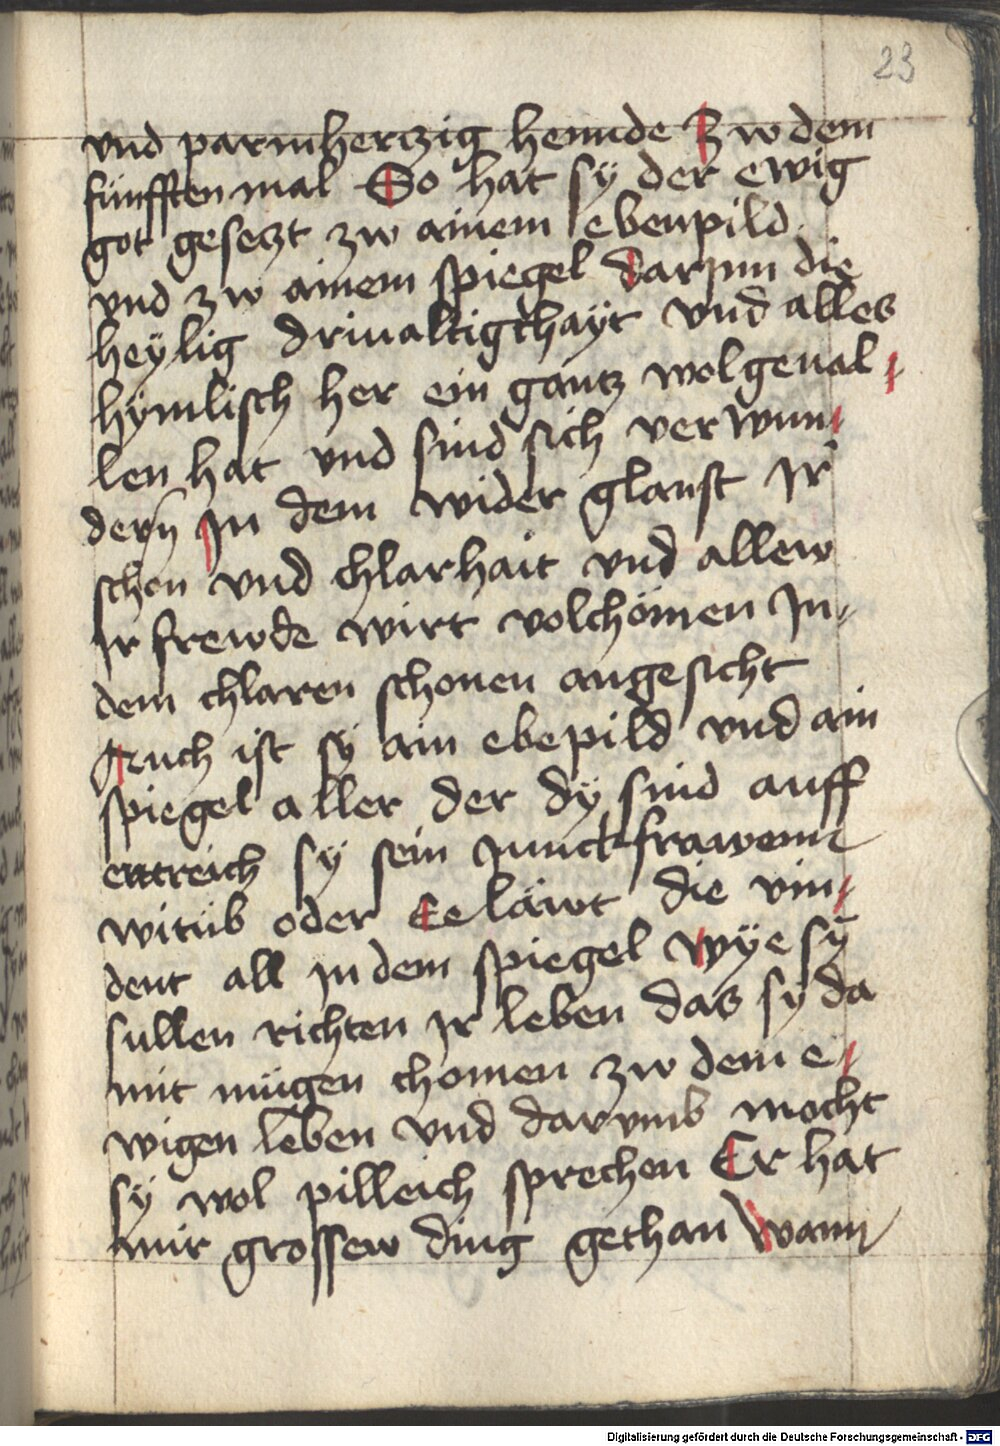 23
vnd parmhertzig hennde Zw dem
fünfften mal So hat sy der ewig
got gesetzt zw ainem ebenpild
vnd zw ainem spiegel darjnn die
heÿlig driualtigkhaÿt vnd alles
hÿmlisch her ein gantz wolgeual
len hat vnd sind sich verwun
dern Jn dem wider glanst Jr
schon vnd chlarhait vnd allew
Jr frewde wirt volchömen Jn
dem chlaren schonen angesicht
Auch ist sÿ ain ebepild vnd ain
spiegel aller der dÿ sind auff
ertreich sÿ sein Junckfrawenn
witüb oder Eeläwt die vin
dent all Jn dem spiegel wÿe sÿ
sullen richten Jr leben das sÿ da
mit mügen chomen zw dem e
wigen leben vnd darvmb mocht
sÿ wol pilleich sprechen Er hat
mir grossew ding gethan Wann
Digitalisierung gefördert durch die Deutsche Forschungsgemeinschaft - DFG